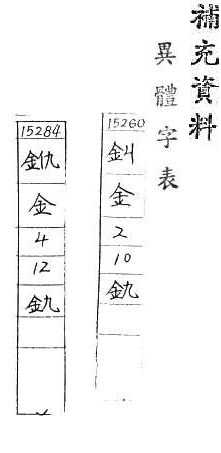 補充資料
異體字表
15260
金
2
10
釚
15284
金
4
12
釚